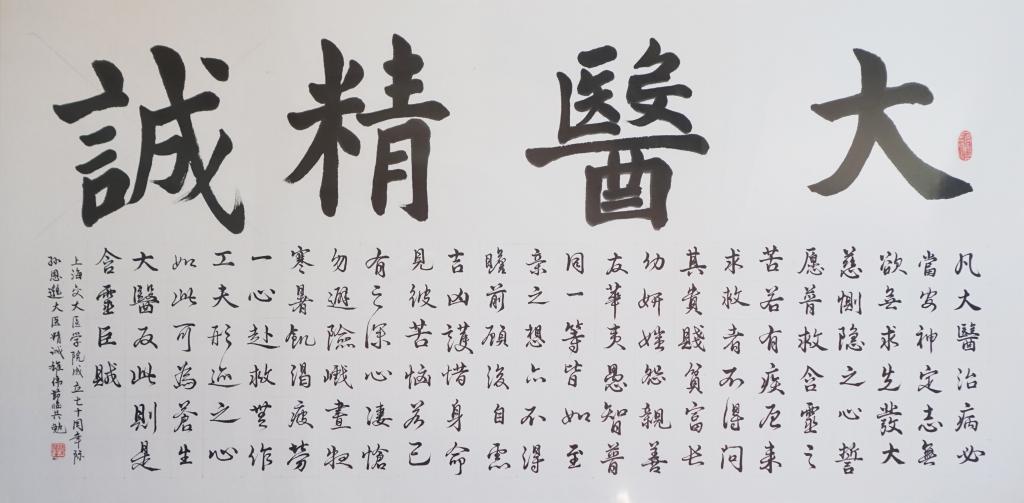 大醫精誠
凡大醫治病必
當安神定志無
欲無求先發大
慈惻隐之心誓
愿普救含靈之
苦若有疾厄来
求救者不得问
其貴賤貧富长
幼妍媸怨親善
友華夷愚智普
同一等皆如至
亲之想亦不得
瞻前顾後自慮
吉凶護惜身命
見彼苦恼若己
有之深心凄愴
勿避險巇晝夜
寒暑飢渴疲勞
一心赴救無作
工夫形迹之心
如此可為蒼生
大醫反此則是
含靈巨賊
上海交大医学院成立七十周年际
孙思邈大医精诚雄伟节临共勉